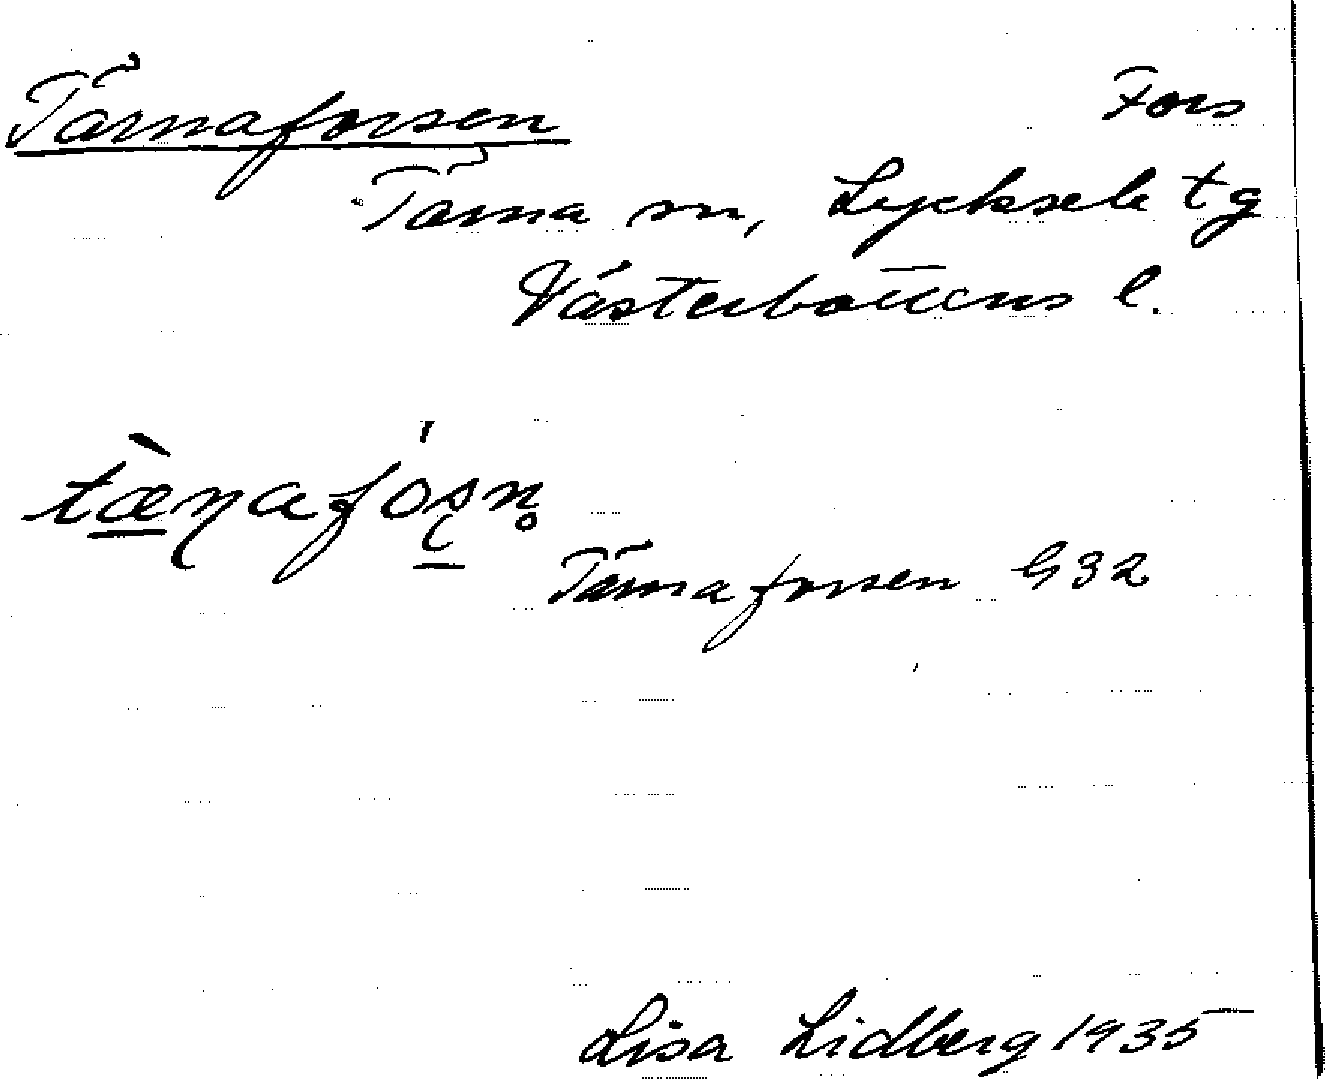 Tärnaforsen Fors
Tärna sn, Lycksele tg
Västerbottens l.
tæ̀ɳafóʂn̥
Tärnaforsen G32
Lisa Lidberg 1935